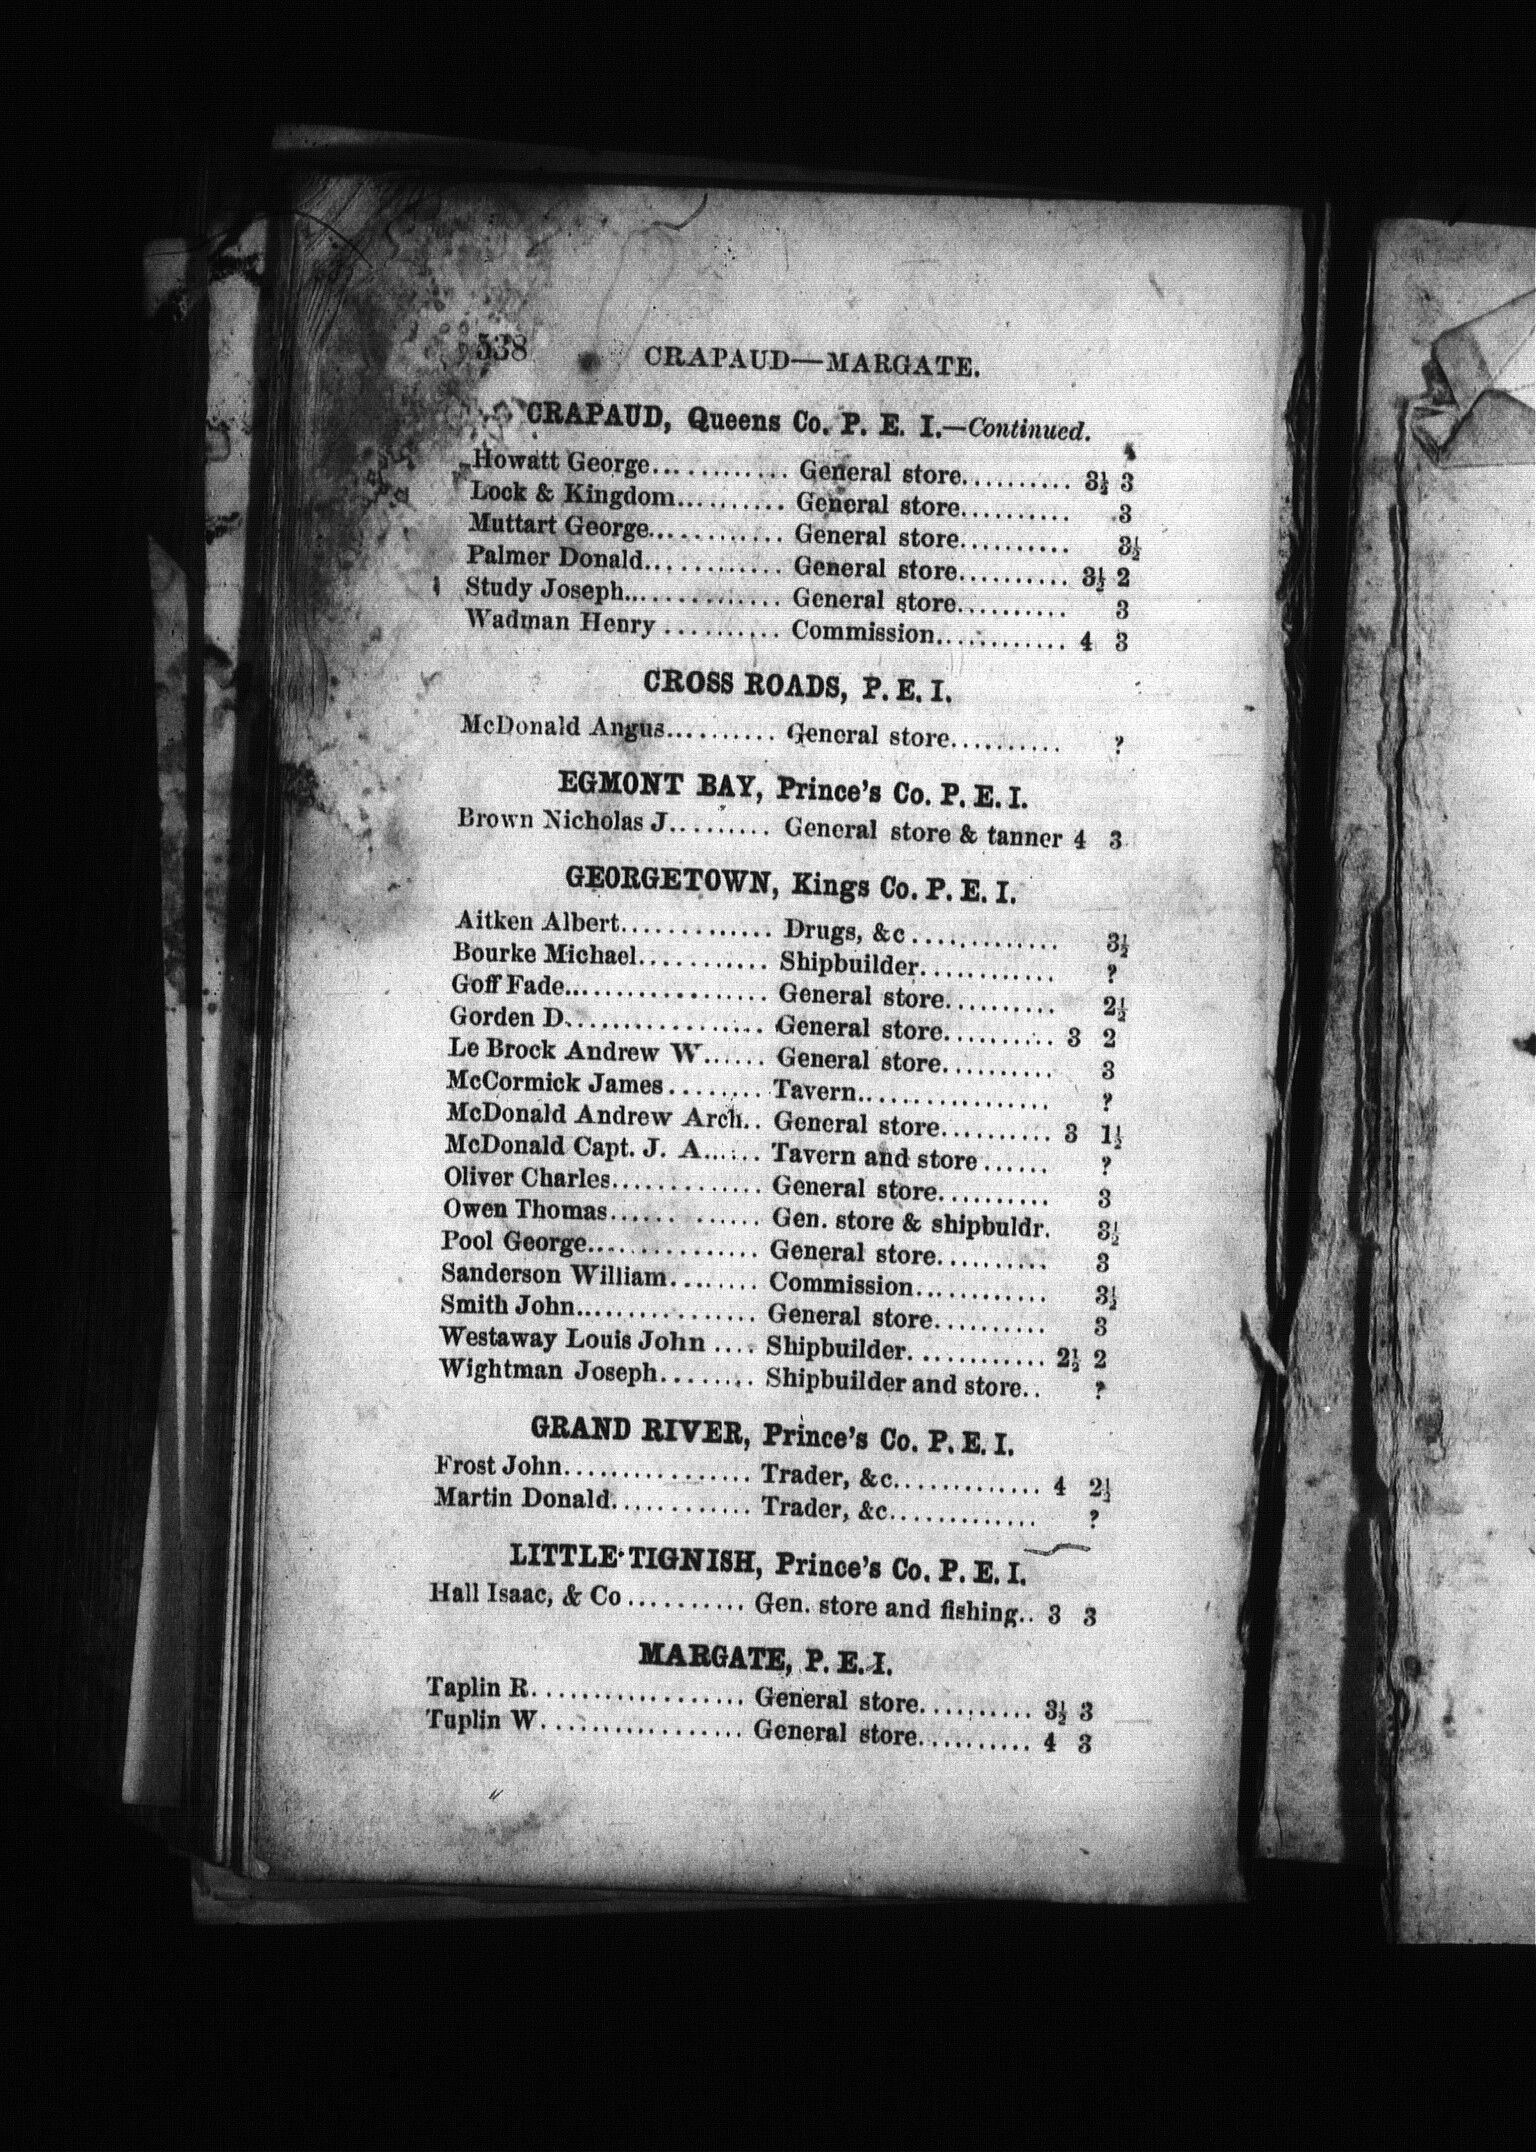 538
CRAPAUD—MARGATE.
CRAPAUD, Queens Co. P. E. I.—Continued.
Howatt George............ General store.......... 3½ 3
Lock & Kingdom.......... General store.......... 3
Muttart George............ General store.......... 3½
Palmer Donald............ General store.......... 3½ 2
Study Joseph............. General store.......... 3
Wadman Henry .......... Commission............ 4 3
CROSS ROADS, P. E. I.
McDonald Angus.......... General store.......... ?
EGMONT BAY, Prince's Co. P. E. I.
Brown Nicholas J......... General store & tanner 4 3
GEORGETOWN, Kings Co. P. E. I.
Aitken Albert............. Drugs, &c ............. 3½
Bourke Michael........... Shipbuilder............ ?
Goff Fade................. General store.......... 2½
Gorden D................. General store.......... 3 2
Le Brock Andrew W...... General store.......... 3
McCormick James ........ Tavern................. ?
McDonald Andrew Arch.. General store.......... 3 1½
McDonald Capt. J. A...... Tavern and store ...... ?
Oliver Charles............. General store.......... 3
Owen Thomas............. Gen. store & shipbuldr. 3½
Pool George............... General store.......... 3
Sanderson William........ Commission............ 3½
Smith John............... General store.......... 3
Westaway Louis John .... Shipbuilder............ 2½ 2
Wightman Joseph........ Shipbuilder and store.. ?
GRAND RIVER, Prince's Co. P. E. I.
Frost John................ Trader, &c............. 4 2½
Martin Donald............ Trader, &c............. ?
LITTLE TIGNISH, Prince's Co. P. E. I.
Hall Isaac, & Co .......... Gen. store and fishing.. 3 3
MARGATE, P. E. I.
Taplin R.................. General store.......... 3½ 3
Tuplin W................. General store.......... 4 3